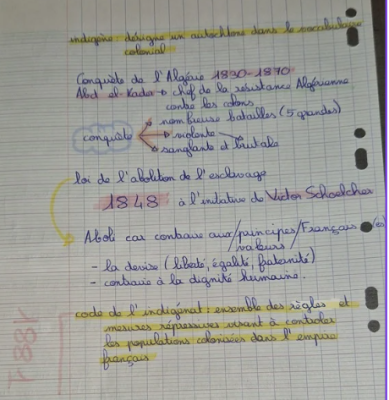 indigène : désigne un autochtone dans le vocabulaire
colonial
Conquête de l'Algérie 1830-1870
Abd el-Kader → chef de la résistance Algérienne
contre les colons
nombreuse batailles (5 grandes)
conquête
violente
sanglante et brutale
loi de l'abolition de l'esclavage
1848 à l'initiative de Victor Schoelcher
Aboli car contraire aux/principes/Français
valeurs
- la devise (liberté, égalité, fraternité)
- contraire à la dignité humaine.
code de l'indigénat : ensemble des règles et
mesures répressives visant à contrôler
les populations colonisées dans l'empire
français
1881